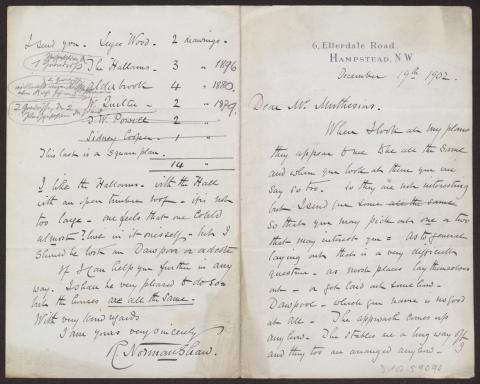 6, Ellerdale Road,
Hampstead, N.W
December 19th 1902.
Dear Mr. Muthesius.
When I look at my plans
they appear to me all the same
and when you look at them you will
say so too. So they are not interesting
but I send you some all the same
so that you may pick out one or two
that may interest you = As to general
laying out that is a very difficult
question. as most places lay themselves
out - or get laid out somehow.
Dawpool - which you name is no good
at all. The approach comes up
anyhow. The stables are a long way off
and they too are arranged anyhow. I
D 102-59090
I send you. Leyes Wood. 2 drawings.
The Hallams. 3 " 1896
Alderbrook 4 " 1880.
W. Quilter - 2 " 1879.
J. W. Powell 2 "
Sidney Cooper. 1 "
This last is a square plan.
14 "
I like the Hallams. with the Hall
with an open timber roof - it is not
too large - one feels that one could
almost? live in it oneself - but I
should be lost in Dawpool or a desert
If I can help you further in any
way. I shall be very pleased to do so =
but the houses are all the same.
With very kind regards
I am yours very sincerely
R. Norman Shaw.